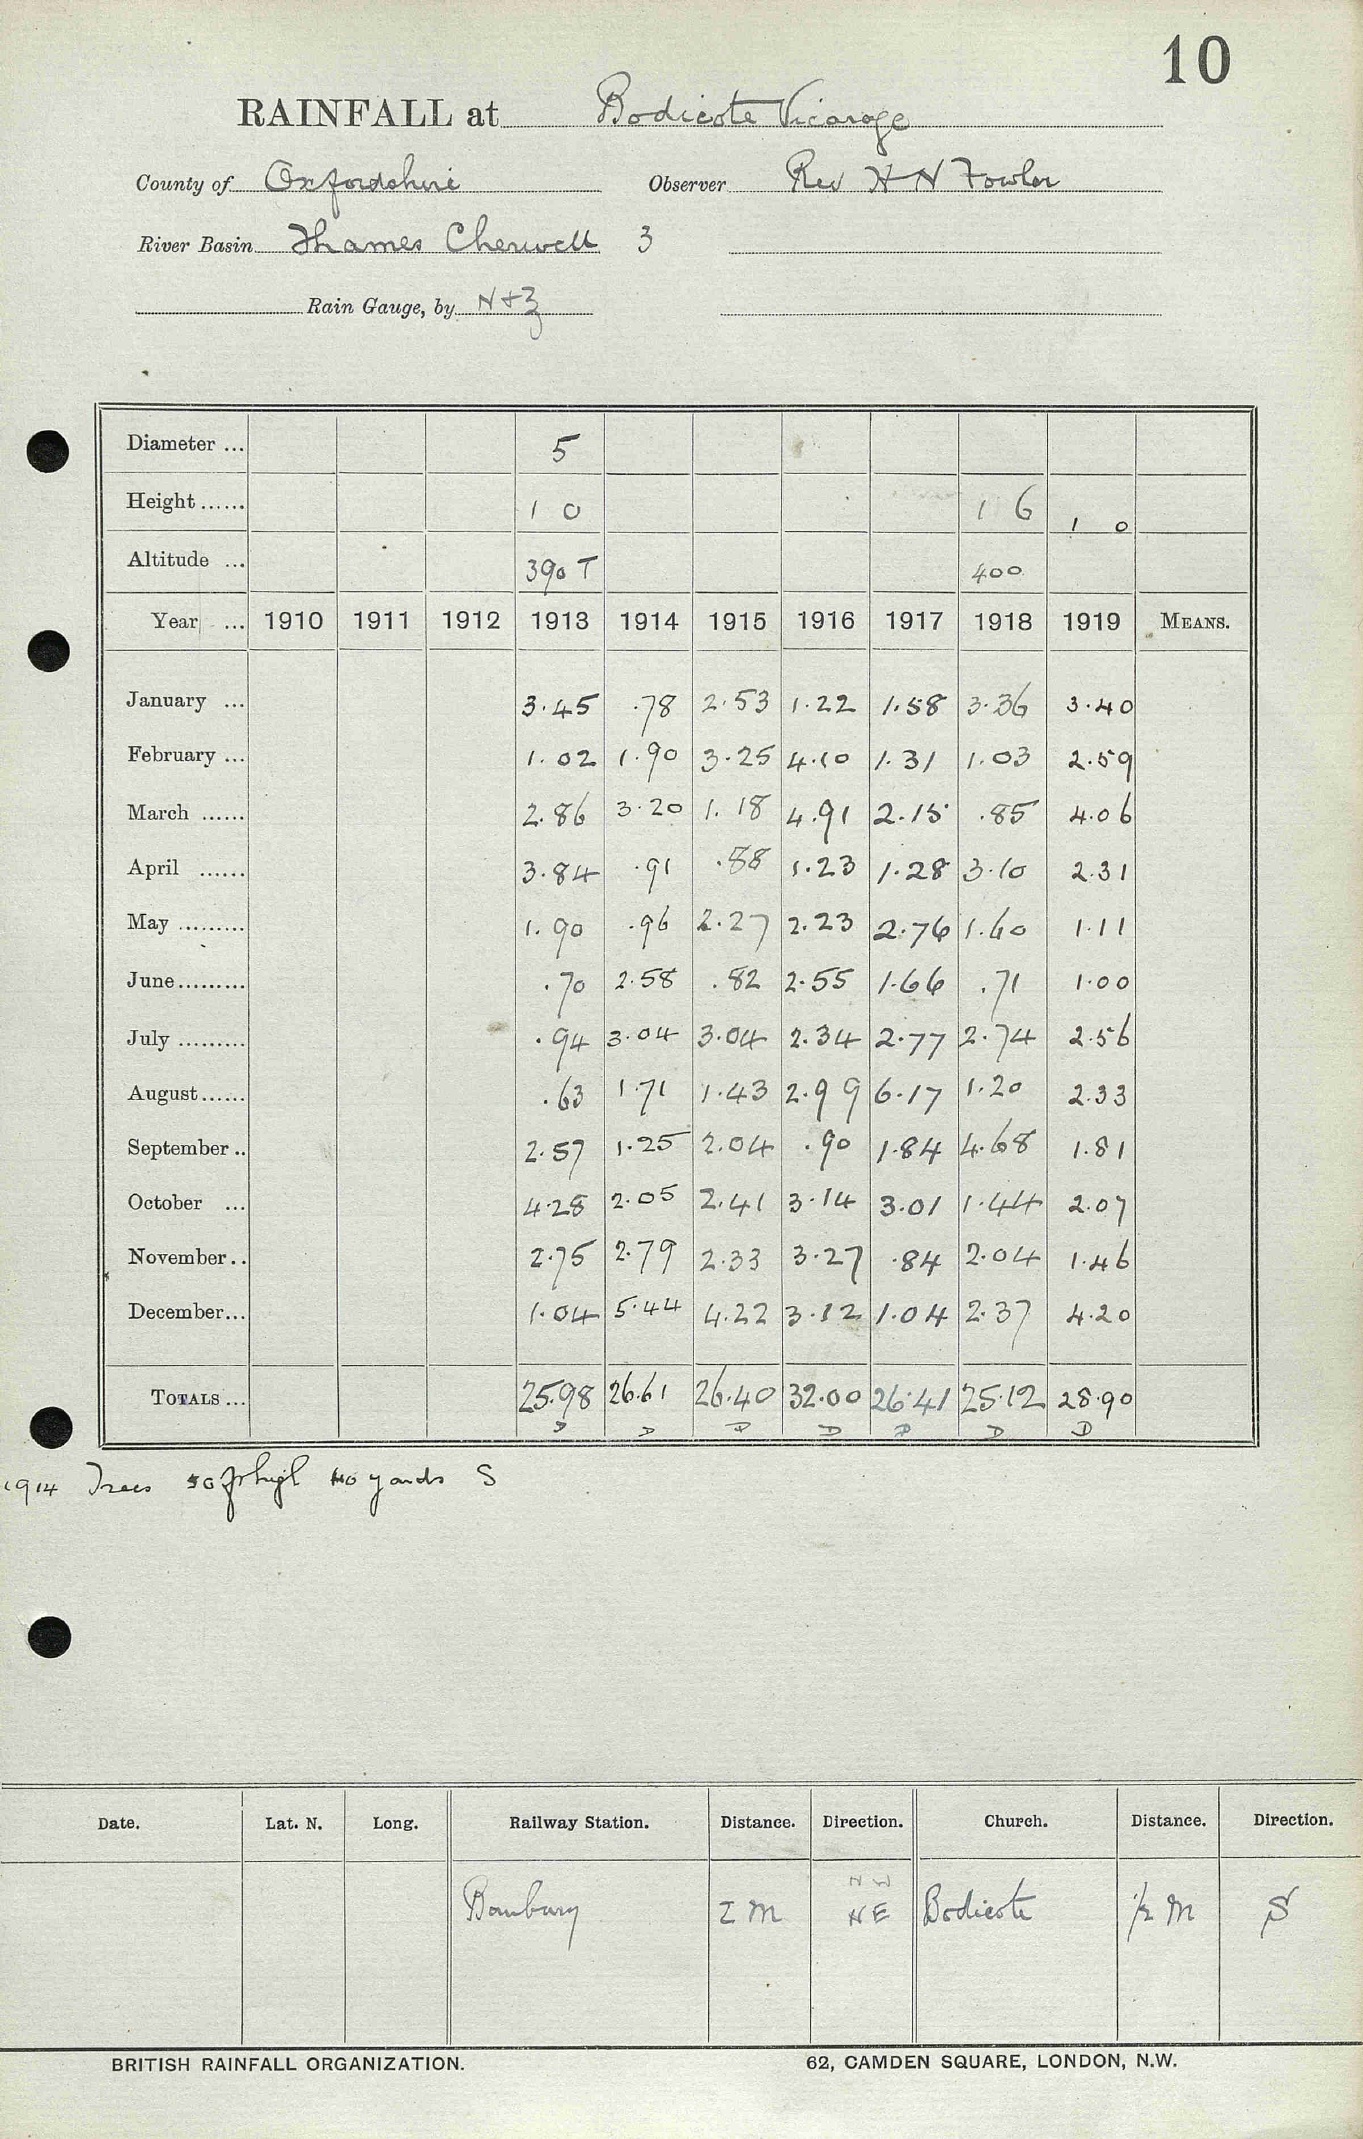 10
RAINFALL at Bodicote Vicarage
County of Oxfordshire Observer Rev H N Fowler
River Basin Thames Cherwell 3
Rain Gauge, by N+Z
Diameter ... 5
Height ...... 1 0 1 6 1 0
Altitude ... 390 T 400
Year ... 1910 1911 1912 1913 1914 1915 1916 1917 1918 1919 MEANS.
January ... 3.45 .78 2.53 1.22 1.58 3.36 3.40
February ... 1.02 1.90 3.25 4.10 1.31 1.03 2.59
March ...... 2.86 3.20 1.18 4.91 2.15 .85 4.06
April ...... 3.84 .91 .88 1.23 1.28 3.10 2.31
May ......... 1.90 .96 2.27 2.23 2.76 1.60 1.11
June......... .70 2.58 .82 2.55 1.66 .71 1.00
July ......... .94 3.04 3.04 2.34 2.77 2.74 2.56
August...... .63 1.71 1.43 2.99 6.17 1.20 2.33
September .. 2.57 1.25 2.04 .90 1.84 4.68 1.81
October ... 4.28 2.05 2.41 3.14 3.01 1.44 2.07
November.. 2.75 2.79 2.33 3.27 .84 2.04 1.46
December... 1.04 5.44 4.22 3.12 1.04 2.37 4.20
TOTALS ... 25.98 26.61 26.40 32.00 26.41 25.12 28.90
D D D D D D D
1914 Trees 50 ft high 40 yards S
Date. Lat. N. Long. Railway Station. Distance. Direction. Church. Distance. Direction.
NW
Banbury 2 M NE Bodicote 1/2 M S
BRITISH RAINFALL ORGANIZATION. 62, CAMDEN SQUARE, LONDON, N.W.